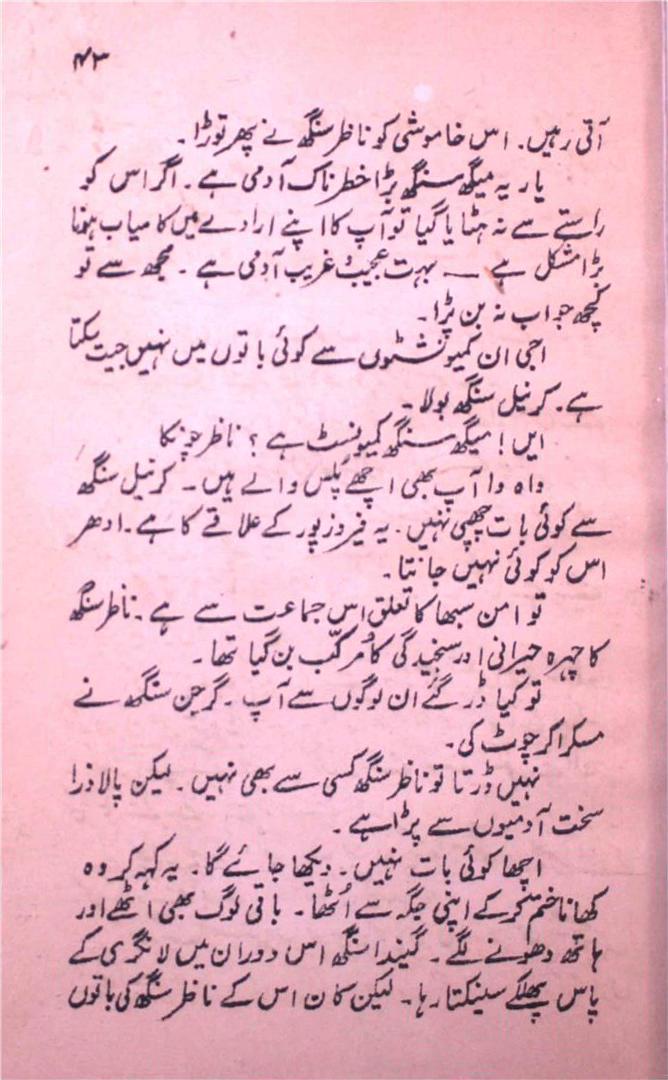 ۴۳
آتی رہیں. اس خاموشی کو ناظر سنگھ نے پھر توڑا۔
یار یہ میگھ سنگھ بڑا خطرناک آدمی ہے۔ اگر اس کو
راستے سے نہ ہٹایا گیا تو آپ کا اپنے ارادے میں کامیاب ہونا
بڑا مشکل ہے — بہت عجیب و غریب آدمی ہے۔ مجھ سے تو
کچھ جواب نہ بن پڑا۔
اجی ان کمیونسٹوں سے کوئی باتوں میں نہیں جیت سکتا
ہے۔ کرنیل سنگھ بولا۔
ایں! میگھ سنگھ کمیونسٹ ہے؟ ناظر چونکا
واہ وا آپ بھی اچھے پُلس والے ہیں۔ کرنیل سنگھ
سے کوئی بات چھپی نہیں۔ یہ فیروز پور کے علاقے کا ہے۔ ادھر
اس کو کوئی نہیں جانتا۔
تو امن سبھا کا تعلق اس جماعت سے ہے۔ ناظر سنگھ
کا چہرہ حیرانی اور سنجیدگی کا مُرکّب بن گیا تھا۔
تو کیا ڈر گئے ان لوگوں سے آپ۔ گرجن سنگھ نے
مسکرا کر چوٹ کی۔
نہیں ڈرتا تو ناظر سنگھ کسی سے بھی نہیں۔ لیکن پالا ذرا
سخت آدمیوں سے پڑا ہے۔
اچھا کوئی بات نہیں۔ دیکھا جائے گا۔ یہ کہہ کر وہ
کھانا ختم کر کے اپنی جگہ سے اُٹھا۔ باقی لوگ بھی اٹھے اور
ہاتھ دھونے لگے۔ گیندا سنگھ اس دوران میں لانگری کے
پاس پھلکے سینکتا رہا۔ لیکن کان اس کے ناظر سنگھ کی باتوں